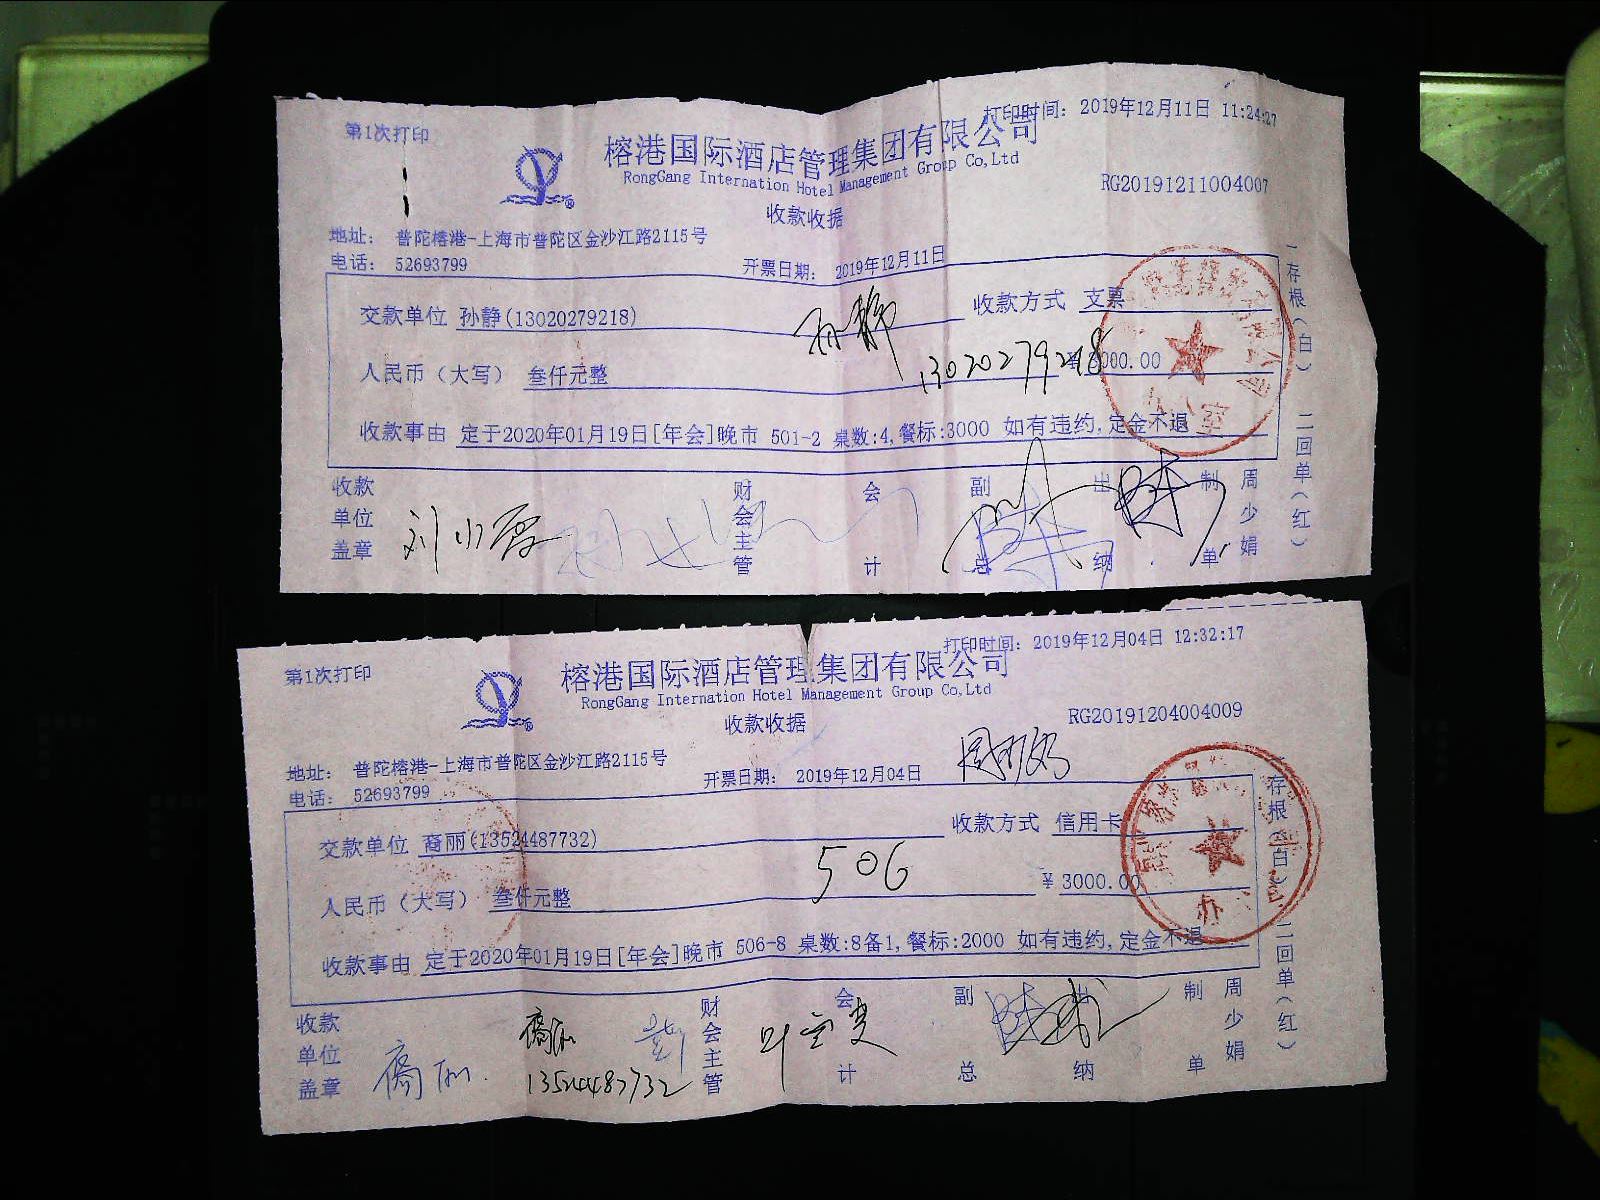 第1次打印
打印时间: 2019年12月11日 11:24:27
榕港国际酒店管理集团有限公司
RongGang Internation Hotel Management Group Co,Ltd
RG20191211004007
收款收据
地址: 普陀榕港-上海市普陀区金沙江路2115号
电话: 52693799
开票日期: 2019年12月11日
交款单位 孙静(13020279218)
收款方式 支票
孙静
13020279218
人民币（大写） 叁仟元整
¥ 3000.00
收款事由 定于2020年01月19日[年会]晚市 501-2 桌数:4,餐标:3000 如有违约,定金不退
一存根(白) 二回单(红)
收款单位盖章
刘小霞
财会主管
会计
副总
出纳
制单
周少娟
第1次打印
打印时间: 2019年12月04日 12:32:17
榕港国际酒店管理集团有限公司
RongGang Internation Hotel Management Group Co,Ltd
RG20191204004009
收款收据
地址: 普陀榕港-上海市普陀区金沙江路2115号
电话: 52693799
开票日期: 2019年12月04日
交款单位 裔丽(13524487732)
收款方式 信用卡
人民币（大写） 叁仟元整
506
¥ 3000.00
收款事由 定于2020年01月19日[年会]晚市 506-8 桌数:8备1,餐标:2000 如有违约,定金不退
存根(白) 二回单(红)
收款单位盖章
裔丽
裔丽
13524487732
财会主管
会计
副总
出纳
制单
周少娟